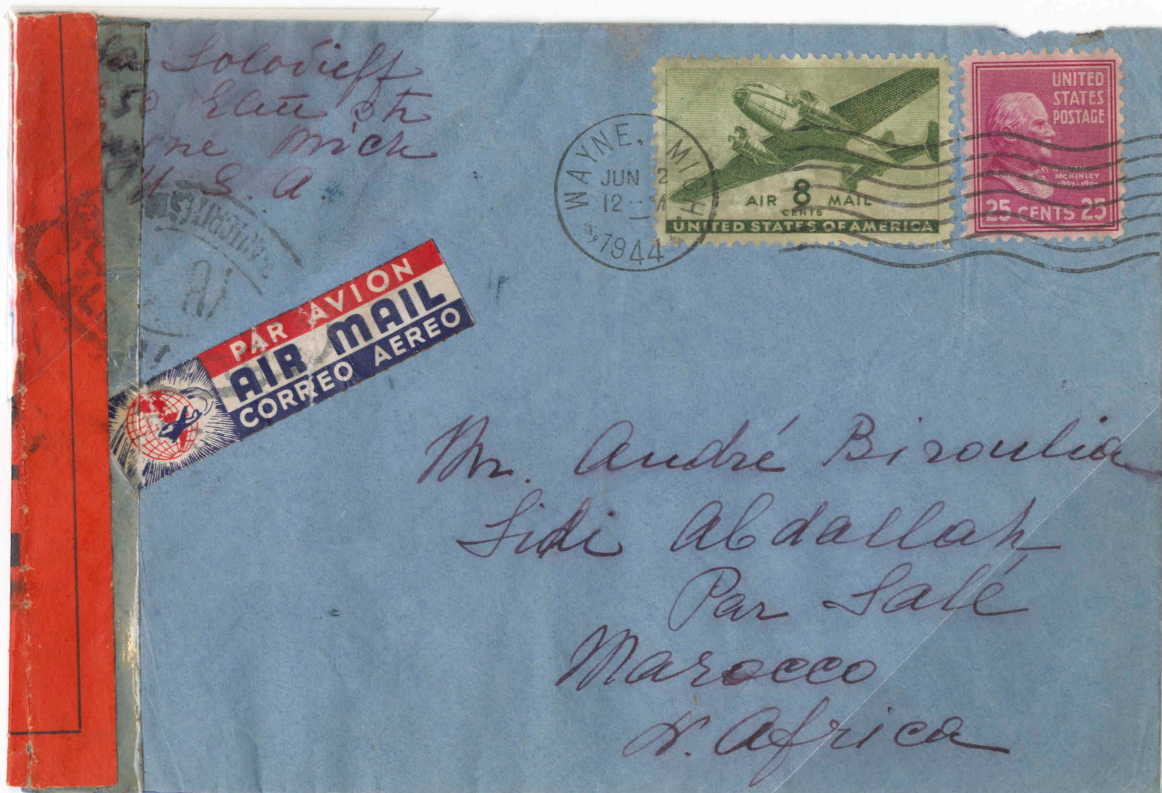 Solovieff
50 Elm St
Wayne Mich
U. S. A.
WAYNE, MICH
JUN 2
12 M
1944
AIR 8 MAIL
CENTS
UNITED STATES OF AMERICA
UNITED
STATES
POSTAGE
MCKINLEY
25 CENTS 25
PAR AVION
AIR MAIL
CORREO AEREO
Mr. André Biroulia
Sidi Abdallah
Par Salé
Marocco
N. Africa